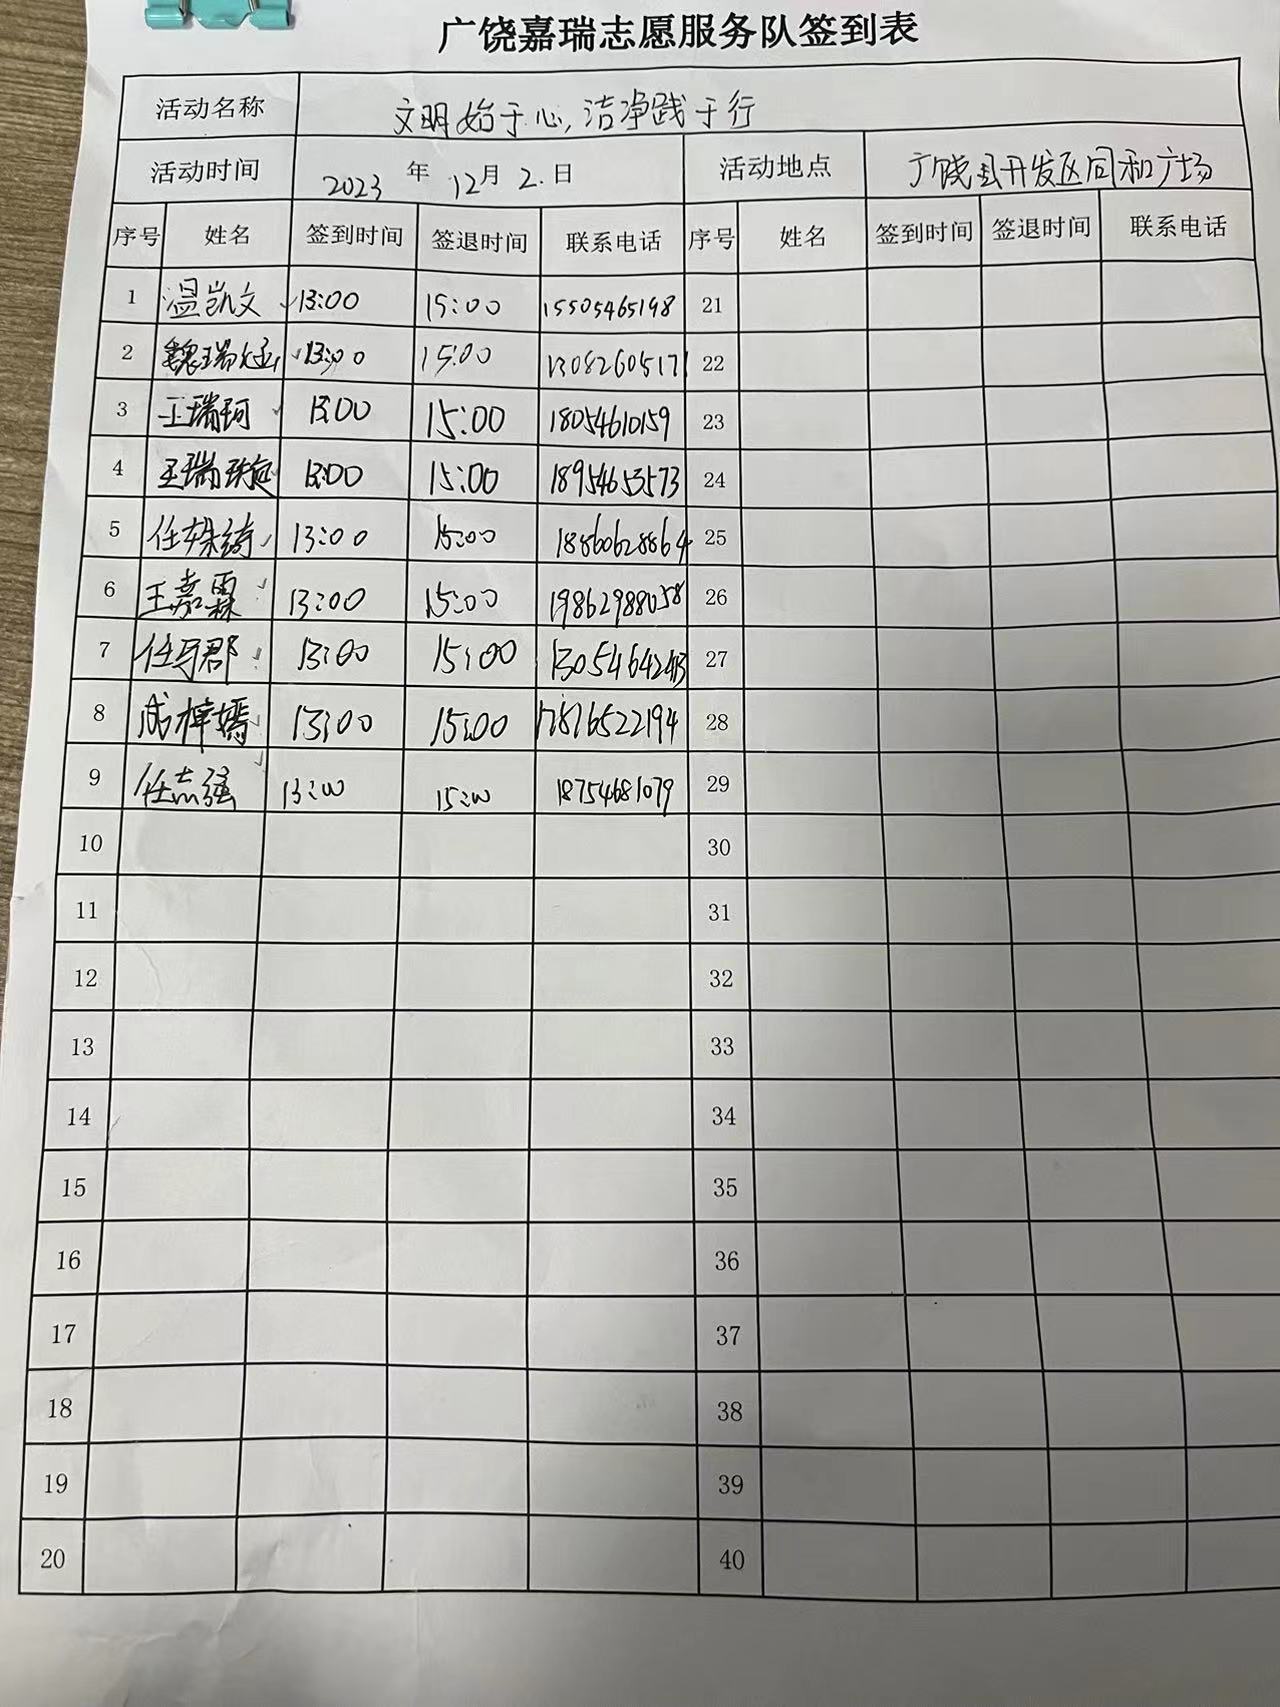 广饶嘉瑞志愿服务队签到表
活动名称 文明始于心,洁净践于行
活动时间 2023年12月2.日 活动地点 广饶县开发区同和广场
序号 姓名 签到时间 签退时间 联系电话 序号 姓名 签到时间 签退时间 联系电话
1 温凯文 13:00 15:00 15505465198 21
2 魏瑞 13:00 15:00 13082605171 22
3 王瑞珂 13:00 15:00 18054610159 23
4 王瑞璇 13:00 15:00 18954653573 24
5 任姝绮 13:00 15:00 18860628864 25
6 王嘉霖 13:00 15:00 19862988058 26
7 任导郡 13:00 15:00 27
8 成梓嫣 13:00 15:00 17876522194 28
9 任志强 13:00 15:00 18754681079 29
10 30
11 31
12 32
13 33
14 34
15 35
16 36
17 37
18 38
19 39
20 40